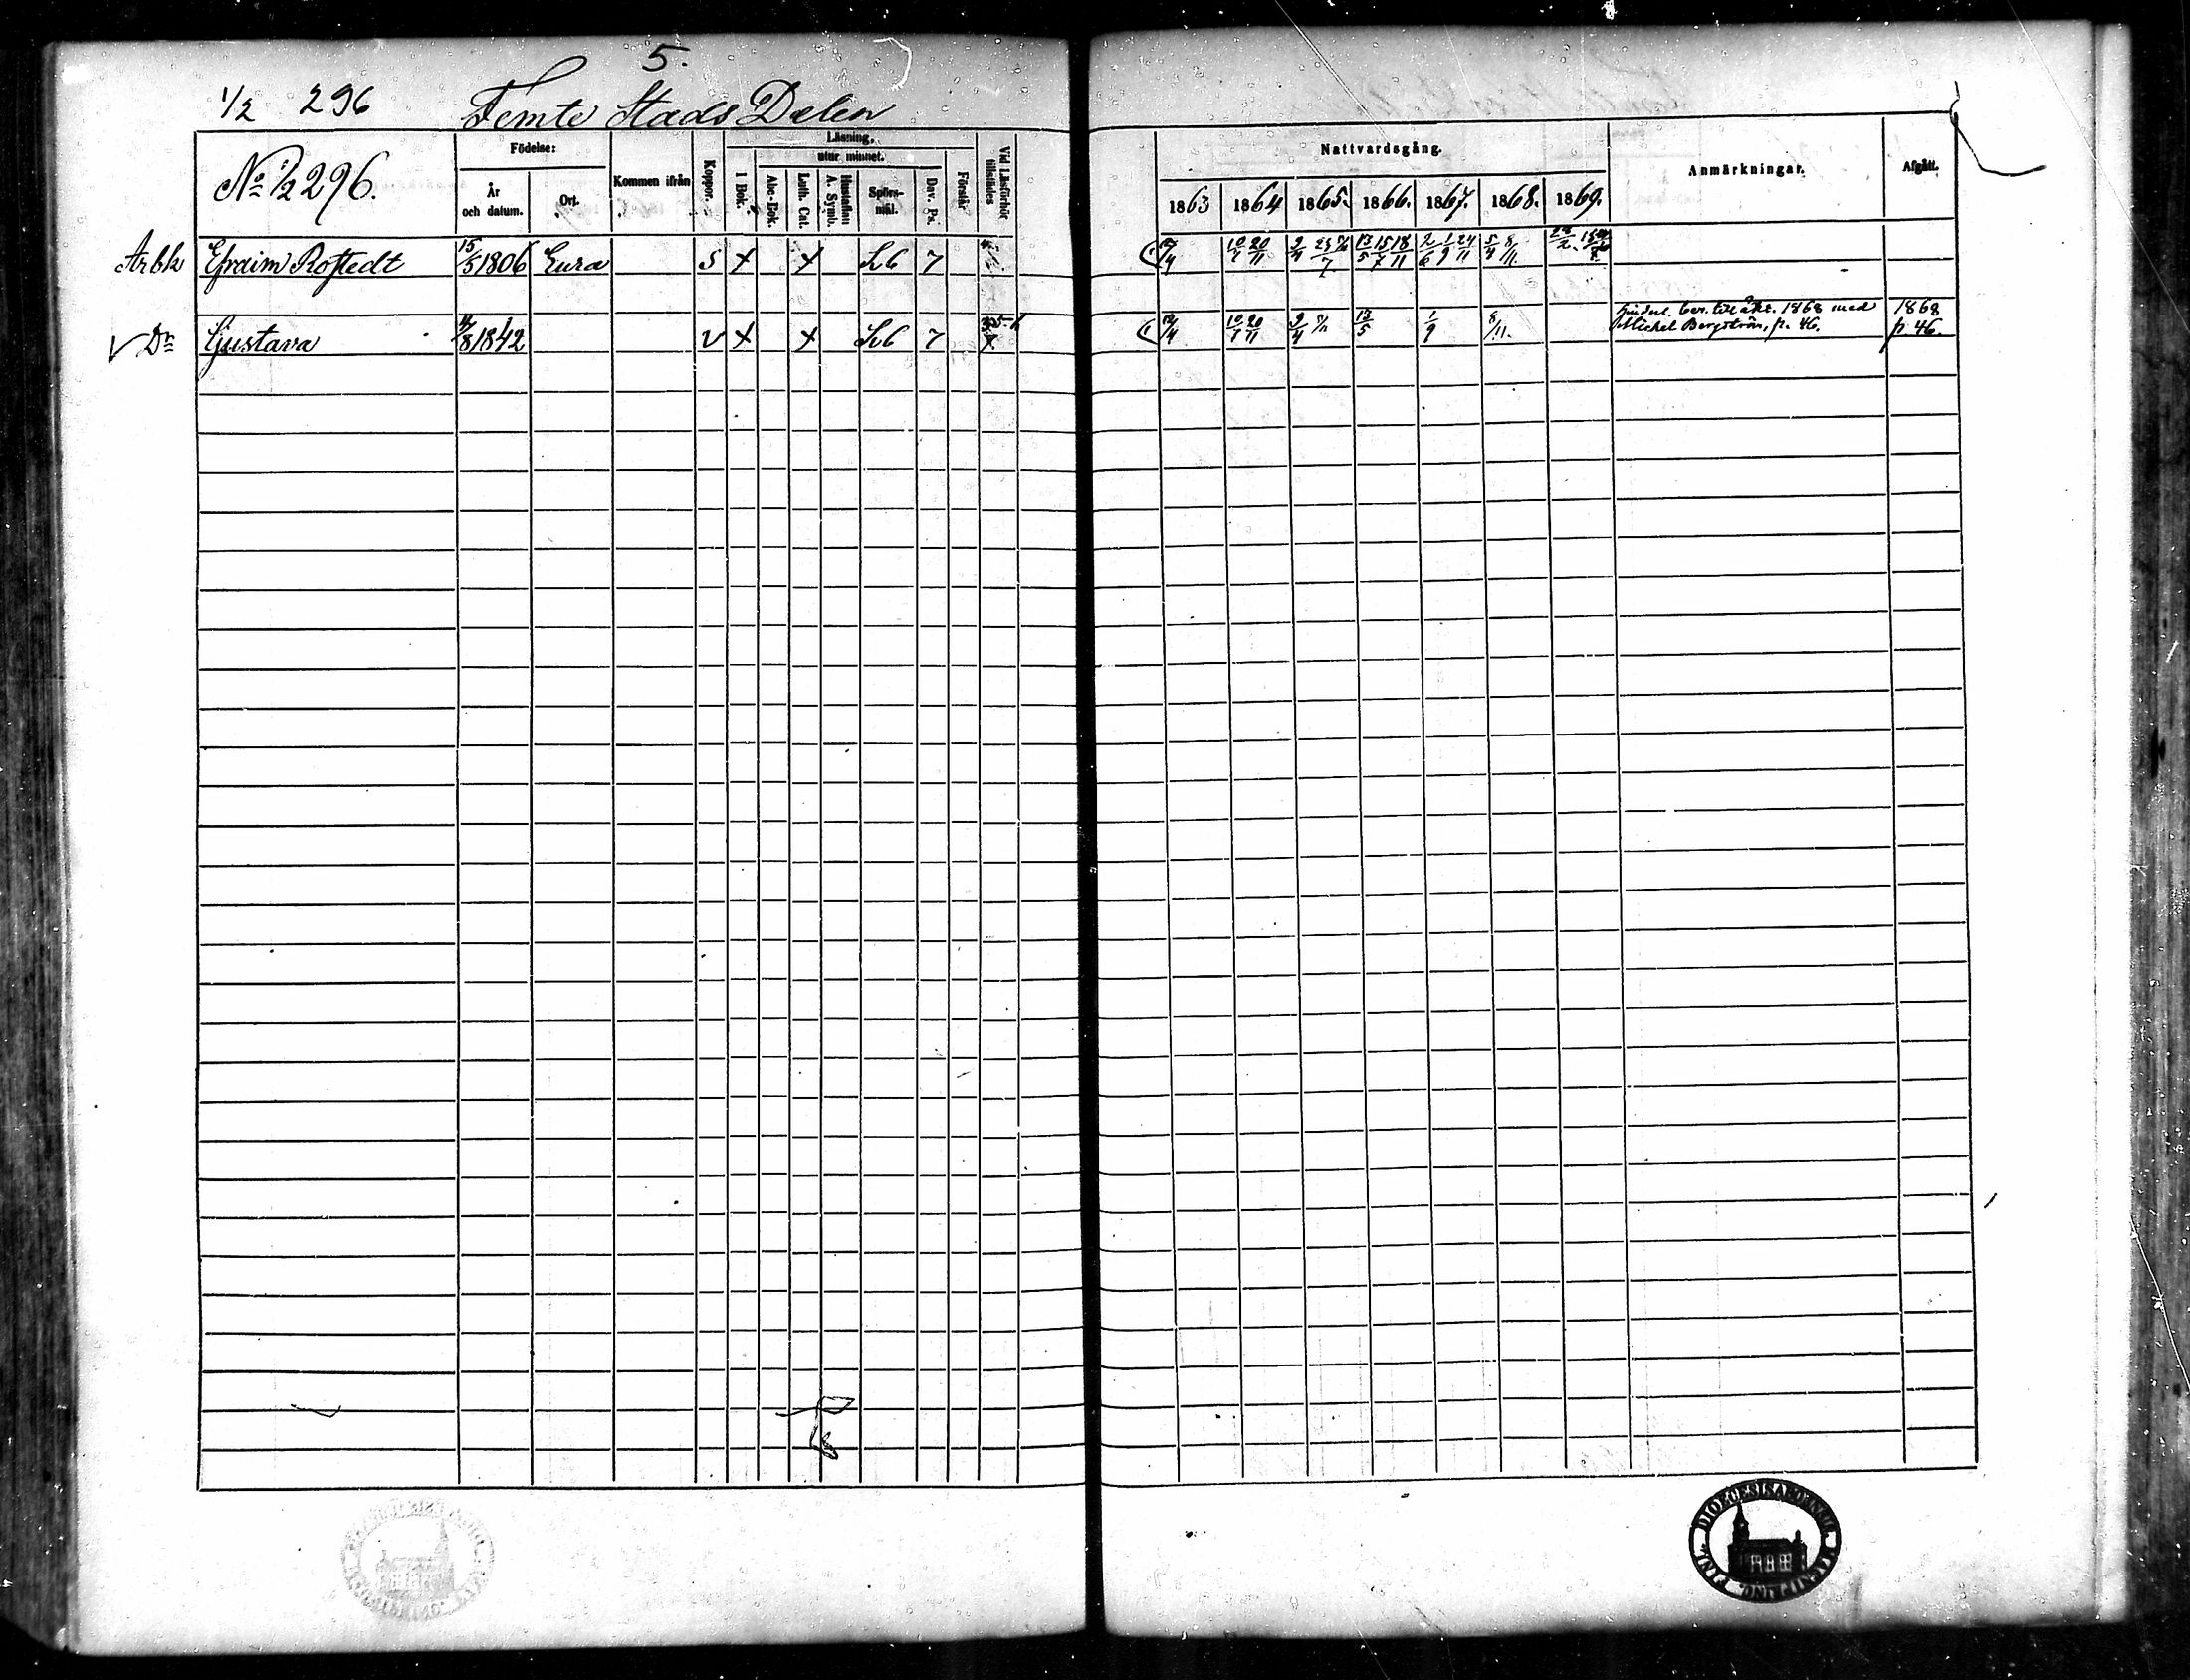 5.
1/2 296 Femte Stads Delen
No 1/2 296.
Födelse:
År och datum.
Ort.
Kommen ifrån
Koppor.
Läsning.
I Bok.
utur minnet.
Abc-Bok.
Luth. Cat.
Hustaflan A. Symb.
Spörsmål.
Dav. Ps.
Förstår
Vid Läsförhör tillstädes
Nattvardsgång.
1863 1864 1865. 1866. 1867. 1868. 1869.
Anmärkningar.
Afgått.
Arbk Efraim Rostedt 15/5 1806 Eura S + + 7
10/7 20/11 13/5 15/7 18/11 2/6 1/9 24/11 5/4 8/11
v Dr Gustava 1842 v + + 7
10/7 20/11 9/4 13/5 1/9 8/11.
Hinderl. bev. till äkt. 1868 med 1868
Michel Bergström, p. 46. p. 46.